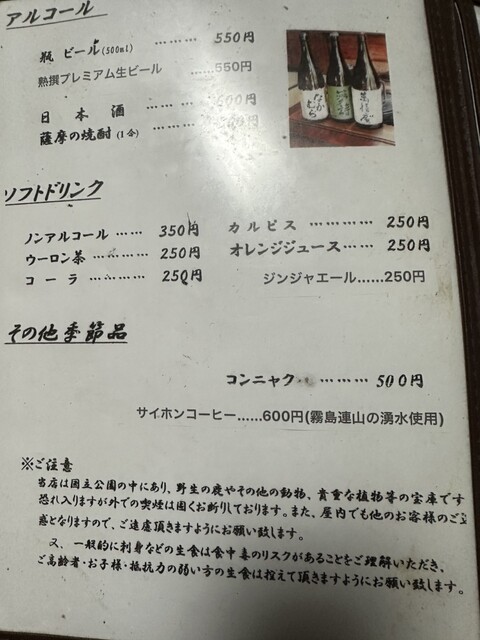 アルコール
瓶 ビール(500ml) ……… 550円
熟撰プレミアム生ビール ……550円
日 本 酒 ……… 600円
薩摩の焼酎(1合) ………
ソフトドリンク
ノンアルコール …… 350円
ウーロン茶 ………… 250円
コ ー ラ ………… 250円
カ ル ピ ス ………… 250円
オレンジジュース…… 250円
ジンジャエール……250円
その他季節品
コンニャク ……… 500円
サイホンコーヒー……600円(霧島連山の湧水使用)
※ご注意
当店は国立公園の中にあり、野生の鹿やその他の動物、貴重な植物等の宝庫です
恐れ入りますが外での喫煙は固くお断りしております。また、屋内でも他のお客様のご迷
惑となりますので、ご遠慮頂きますようにお願い致します。
又、一般的に刺身などの生食は食中毒のリスクがあることをご理解いただき、
ご高齢者・お子様・抵抗力の弱い方の生食は控えて頂きますようにお願い致します。